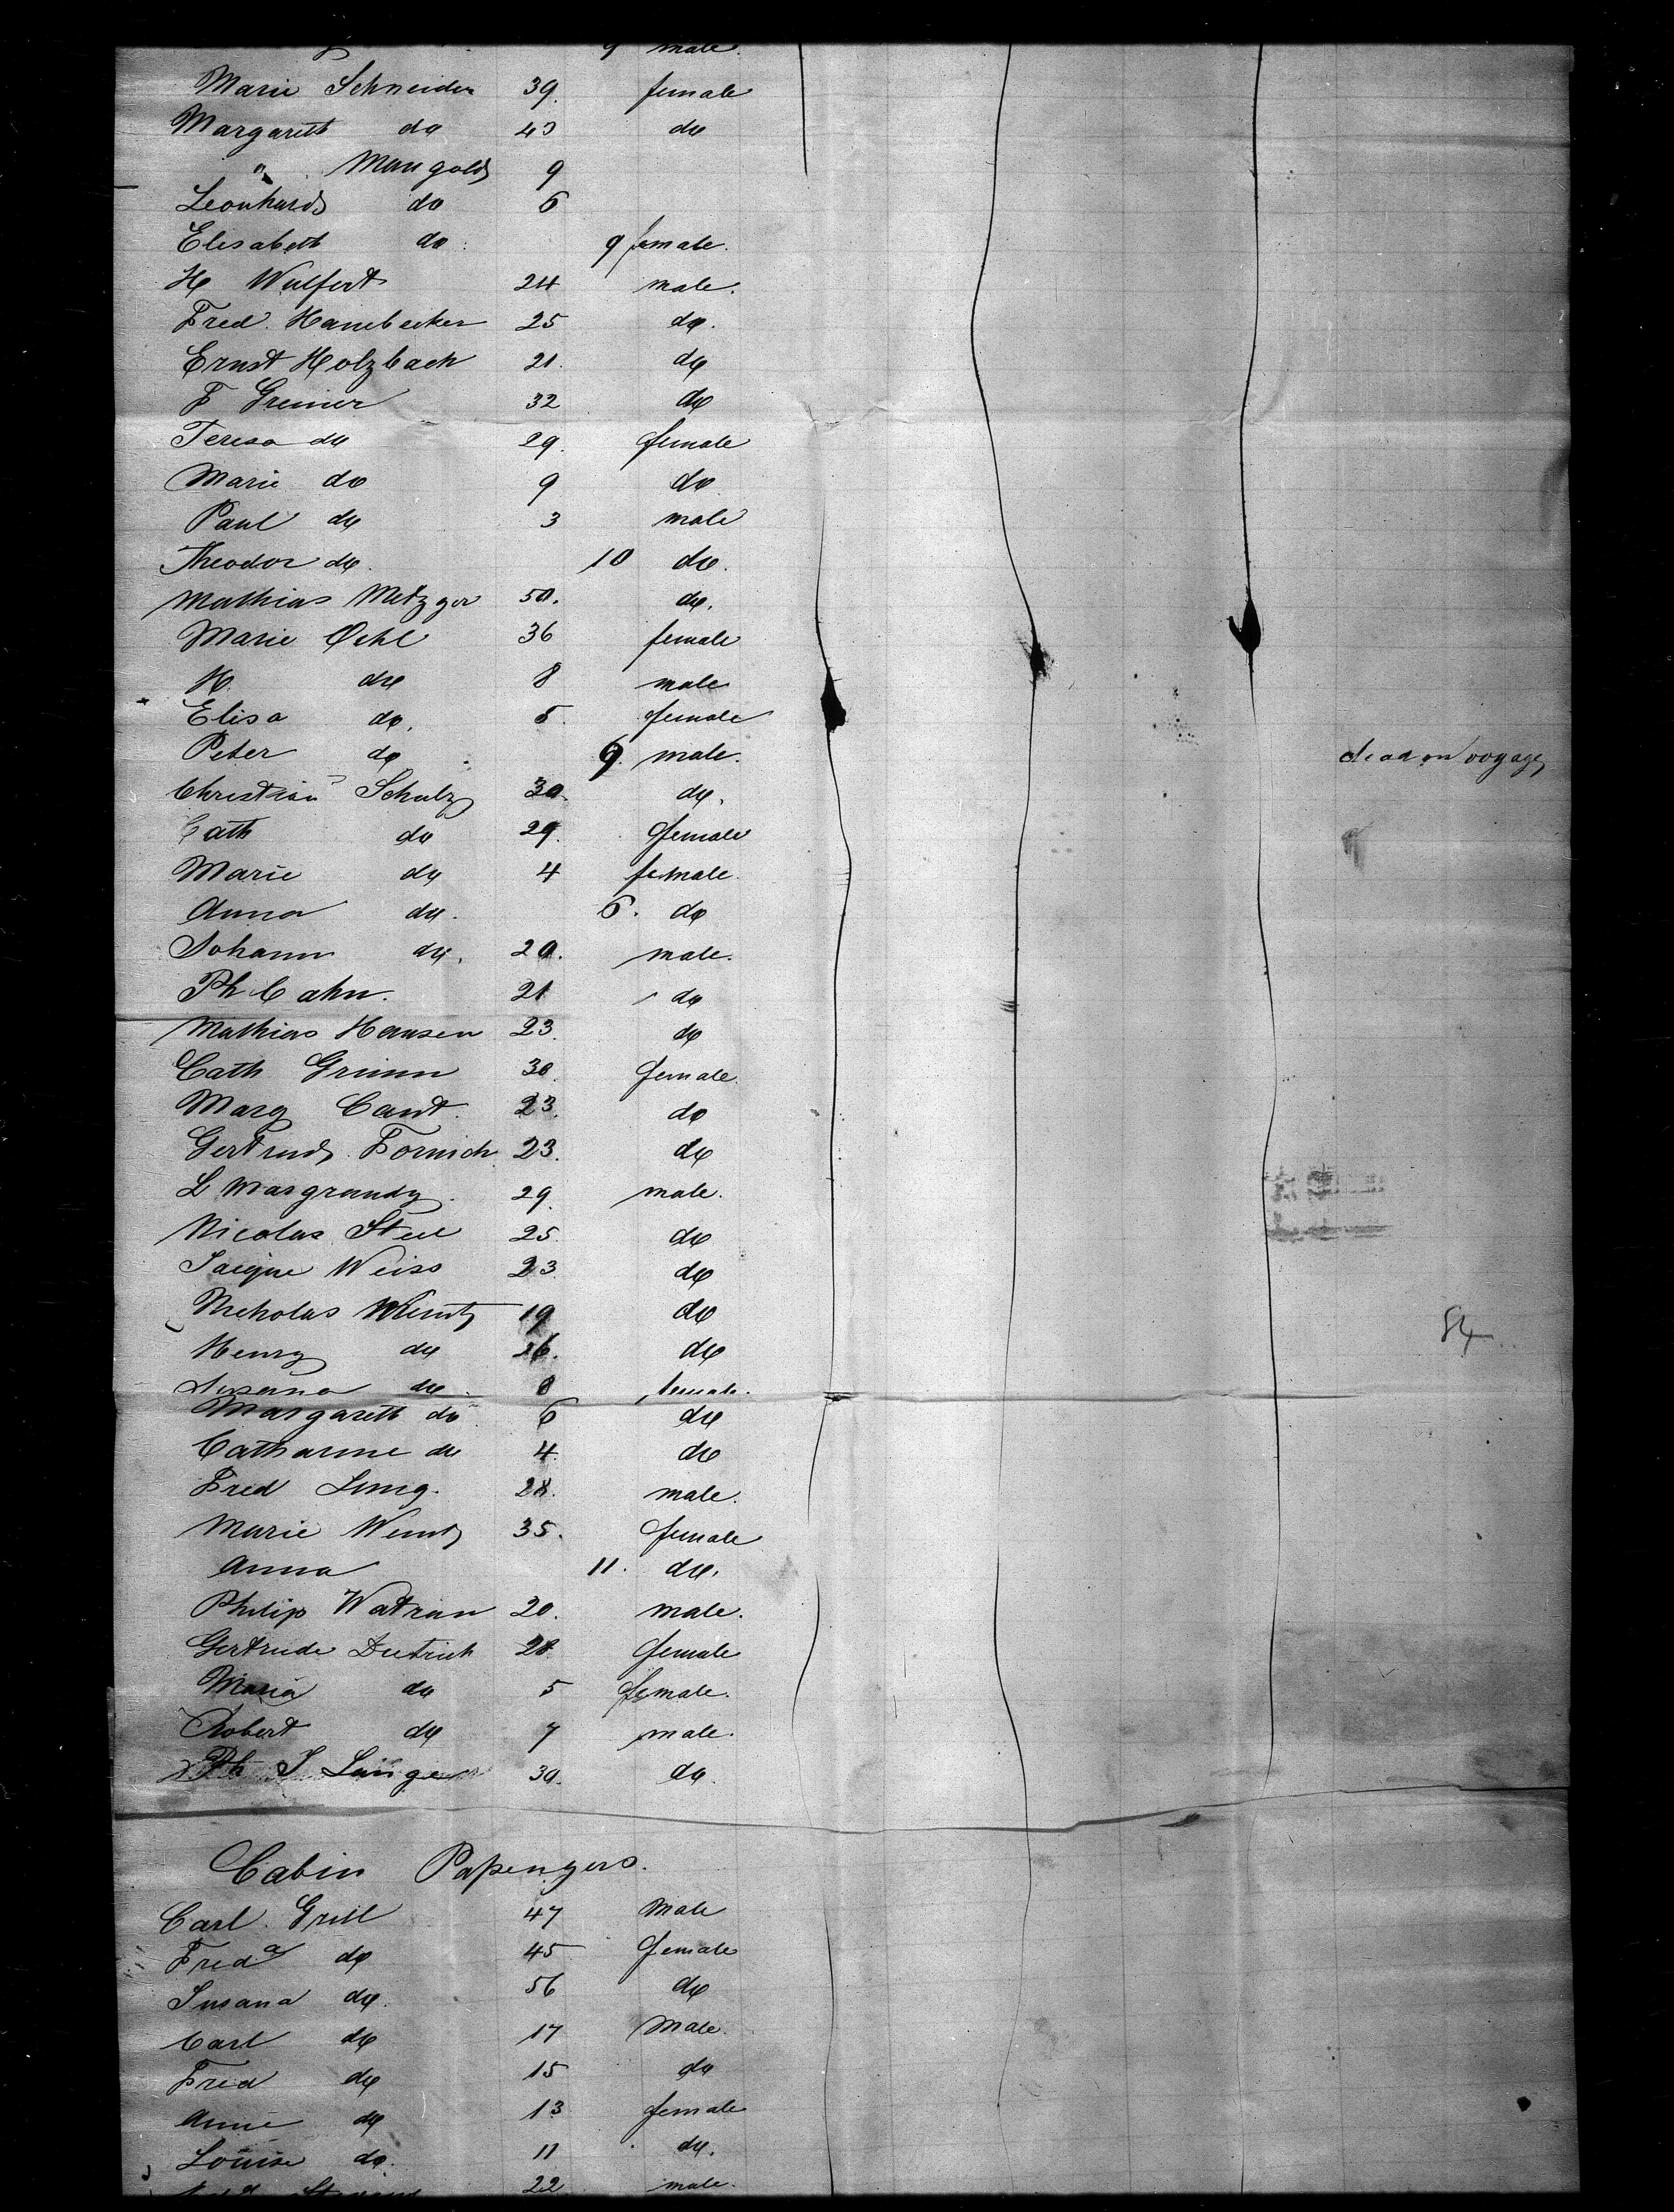 9 male.
Marie Schneider 39. female
Margareth do 43 do
" Mangold 9
Leonhard do 6
Elisabeth do 9 female.
H Wulfert 24 male.
Fred. Hanebecker 25 do.
Ernst Holzbach 21. do
F Greiner 32 do
Teresa do 29. female
Marie do 9 do
Paul do 3 male
Theodor do. 10 do.
Mathias Metzger 50. do.
Marie Oehl 36 female
H. do 8 male
Elisa do. 5. female
Peter do 9. male. dead on voyage
Christian Schulz 30. do.
Cath do 29. female
Marie do 4 female.
Anna do. 6. do
Johann do. 20. male.
Ph Cahn. 21 do
Mathias Hansen 23. do
Cath Grimm 30. female.
Marg Cant. 23. do
Gertrud Fornich 23. do
L Margrandy. 29. male.
Nicolas Steil 25. do
Jacque Weiss 23. do
Nicholas Wentz 19 do
Henry do 26. do
Susanna do. 8 female.
Margareth do 6 do
Catharine do 4. do
Fred Jung. 28. male.
Marie Wentz 35. female
Anna 11. do.
Philip Watrin 20. male.
Gertrude Dietrich 28. female
Maria do 5 female.
Robert do 7 male.
Ph J Länger 30. do.
Cabin Passengers.
Carl Grill 47 Male
Freda do 45 female
Susana do. 56 do
Carl do 17 Male.
Fred do 15 do
Annie do 13 female
Louise do. 11 do.
22 male.